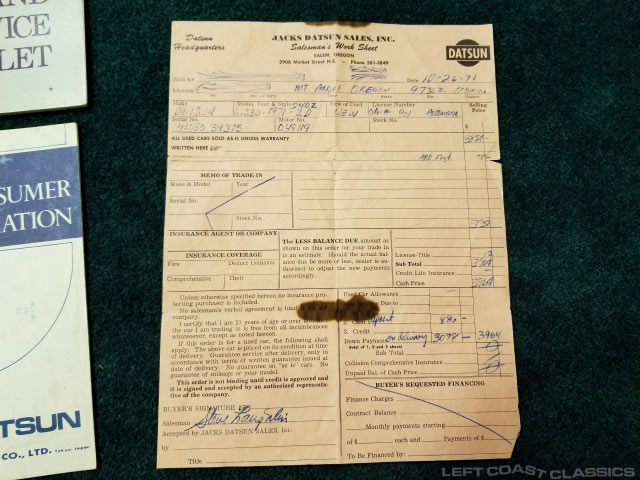 AND
VICE
LET
SUMER
ATION
ATSUN
CO., LTD. Tokyo, Japan
Datsun
Headquarters
JACKS DATSUN SALES, INC.
Salesman's Work Sheet
SALEM, OREGON
2908 Market Street N.E. Phone 581-3849
DATSUN
Sold to
Date 10-26-71
Address MT. Angel OREGON 97362
Make Model, Year & Style New or Used License Number Selling Price
DATSUN 1971 240Z NEW
Serial No. Motor No. Stock No.
ALL USED CARS SOLD AS-IS UNLESS WARRANTY
WRITTEN HERE
MEMO OF TRADE-IN
Make & Model Year
Serial No.
Stock No.
INSURANCE AGENT OR COMPANY
INSURANCE COVERAGE
Fire Deduct Collision
Comprehensive Theft
The LESS BALANCE DUE amount as
shown on this order for your trade in
is an estimate. Should the actual bal-
ance due be more or less, dealer is au-
thorized to adjust the new payments
accordingly.
License-Title
Sub Total
Credit Life Insurance
Cash Price
Unless otherwise specified hereon no insurance pro-
tecting purchaser is included.
No salesman's verbal agreement is binding
I certify that I am 21 years of age or over
the car I am trading is free from all incumbrances
whatsoever, except as noted hereon.
If this order is for a used car, the following shall
apply: The above car is priced on its condition at time
of delivery. Guarantee service after delivery, only in
accordance with terms of written guarantee issued at
date of delivery. No guarantee on "as is" cars. No
guarantee of mileage or year model.
This order is not binding until credit is approved and it
is signed and accepted by an authorized representative
of the company.
Used Car Allowance
Due to
2. Cash deposit 890 -
3. Credit
Down Payment on delivery 3074 - 3964
(total of 1, 2 and 3 above)
Sub Total
Collision Comprehensive Insurance
Unpaid Bal. of Cash Price
BUYER'S REQUESTED FINANCING
Finance Charges
Contract Balance
Monthly payments starting
of $ each and Payments of $
To Be Financed by:
BUYER'S SIGNATURE
Salesman Steve
Accepted by JACKS DATSUN SALES, Inc.
by
Title
LEFT COAST CLASSICS